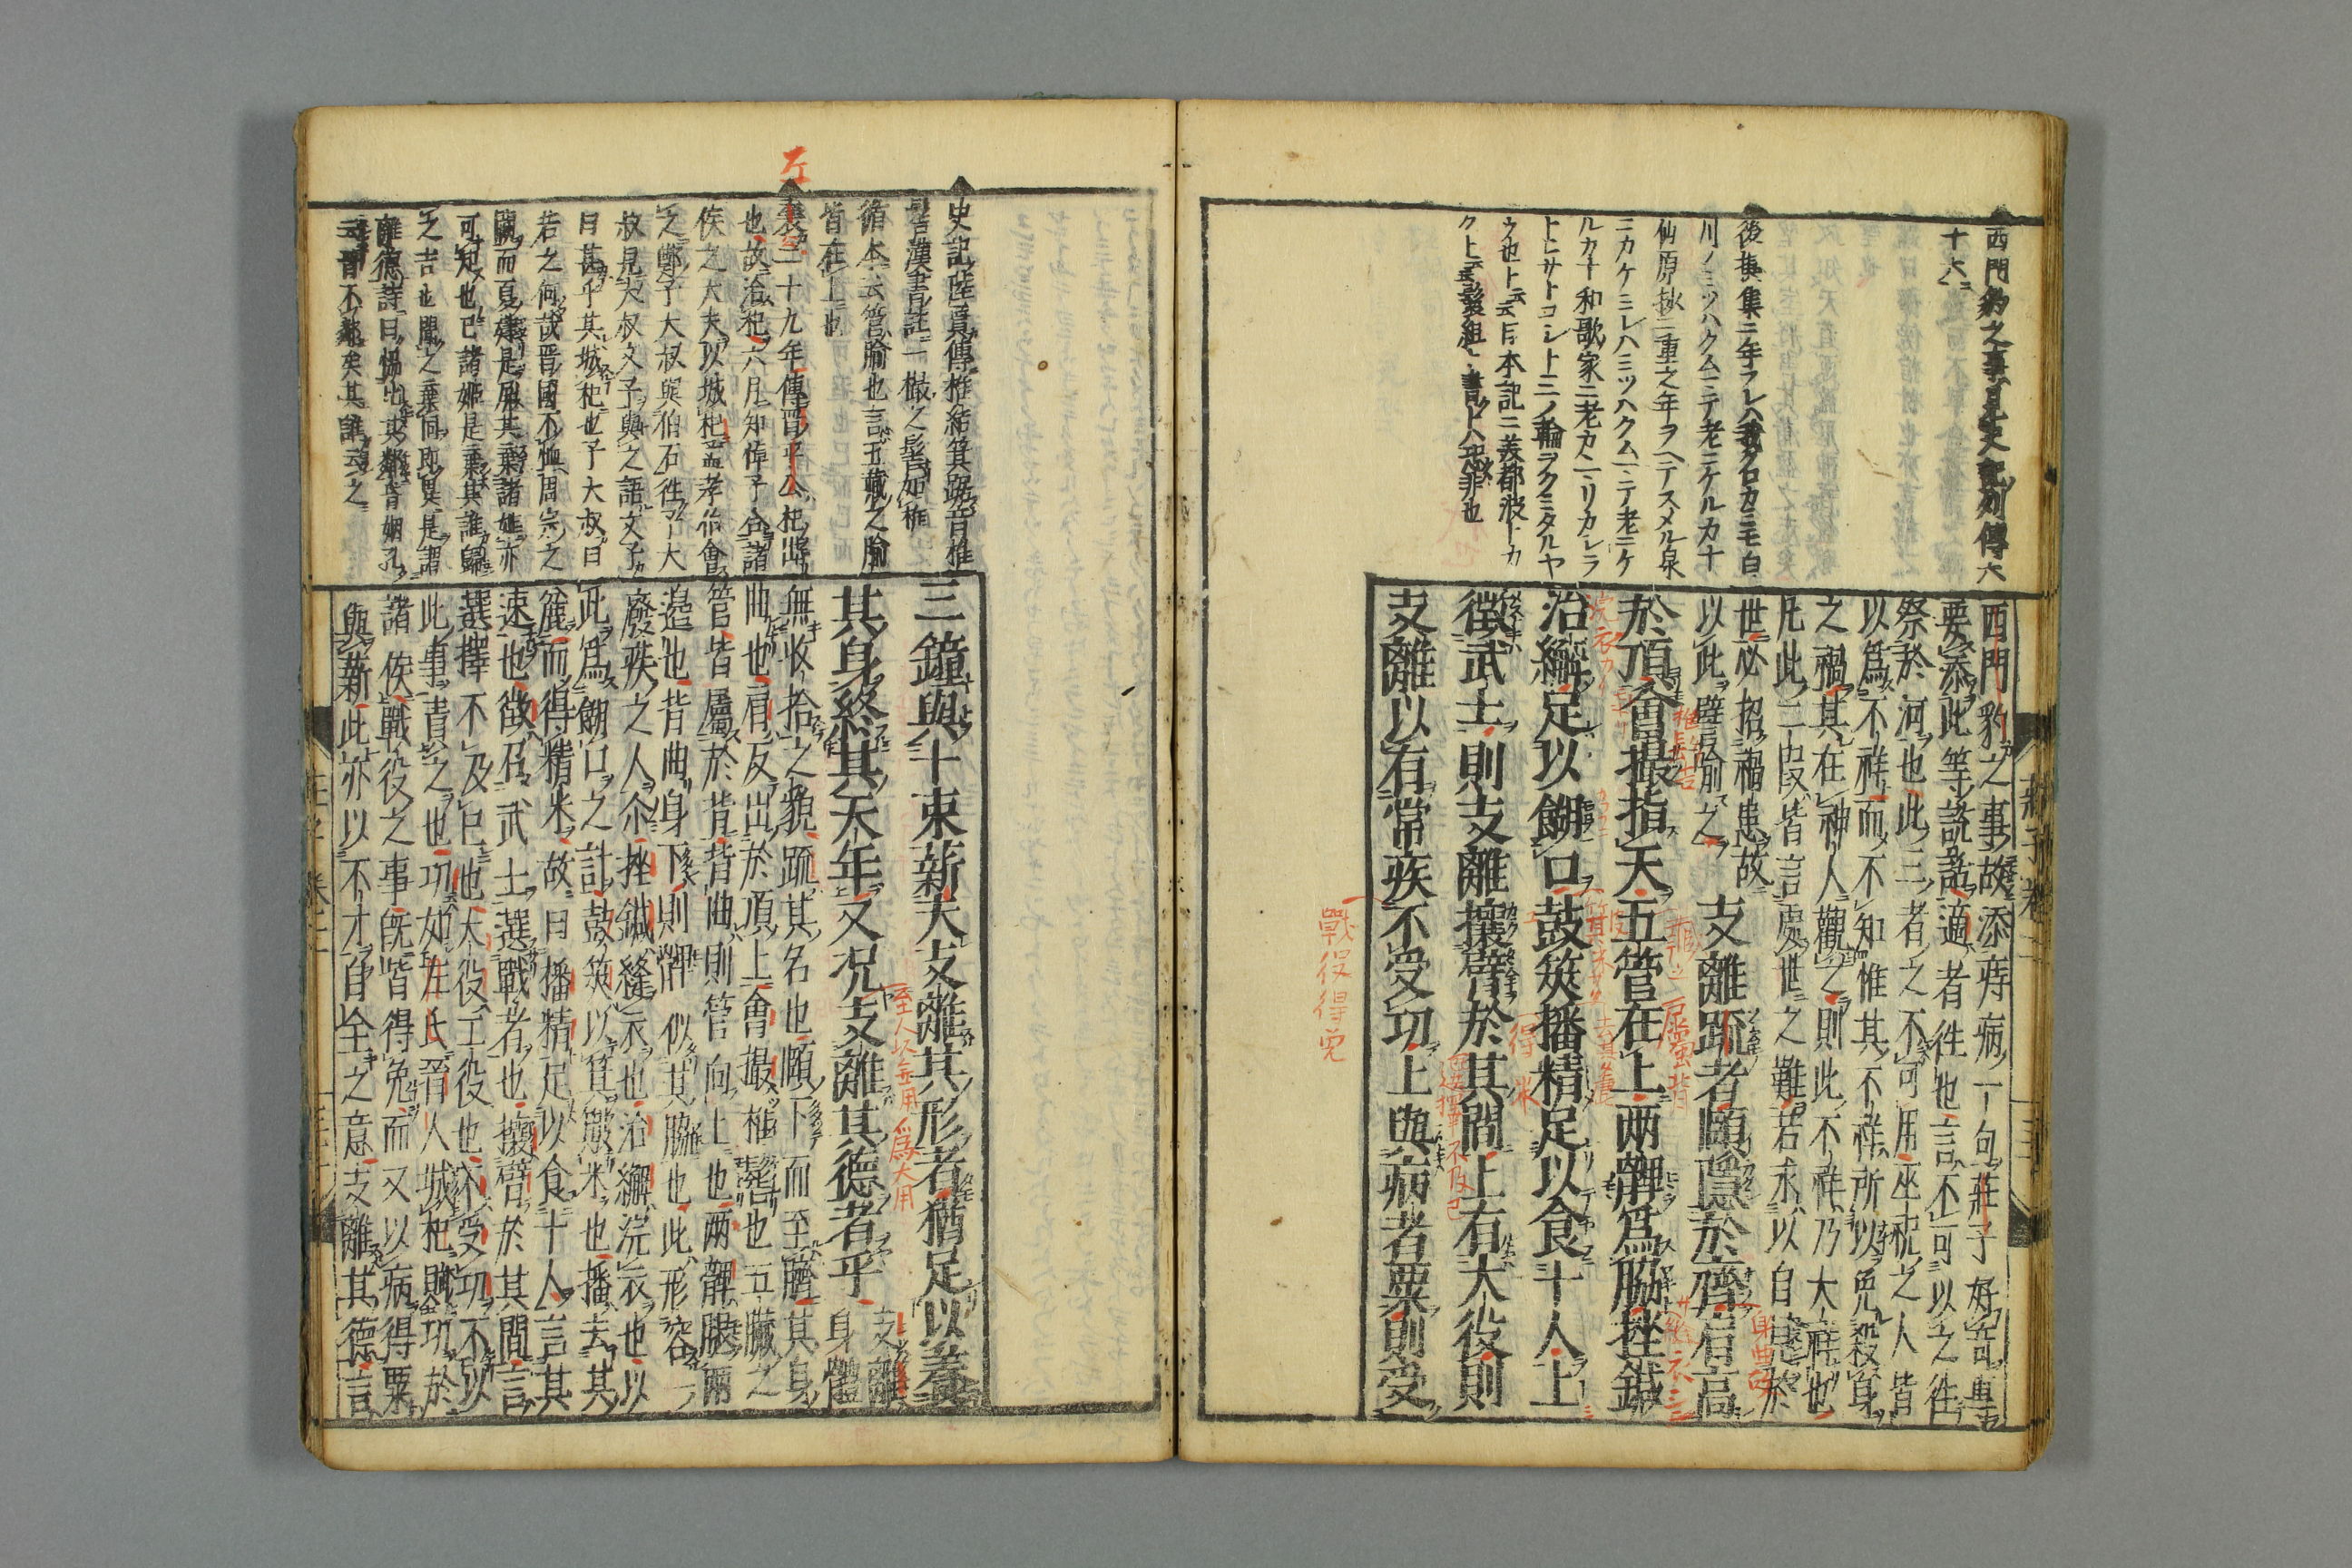 西門豹之事見史記列傳六
十六
後撰集ニ年フレハ我クロカミモ白
川ノミツハクムニテ老ニケルカナ
仙原抄ニ重之年ヲヘテスメル泉
ニカケミレハミツハクムニテ老ニケ
ルカナ和歌家ニ老カヽリカヽラ
西門豹之事故添痔病一句莊子好奇專
要添此等說話適者徃也言不可以之徃
祭於河也此三者之不可用巫祝之人皆
以爲不祥而不知惟其不祥所以免殺身
之禍其在神人觀之則此不祥乃大祥也
凡此二段皆言處世之難若求以自見於
世必招禍患故
以此譬喻之
支離䟽者頤隱於齊肩高
於頂會撮指天五管在上兩髀爲脇挫鍼
治繲足以餬口鼓筴播精足以食十人上
徵武士則支離攘臂於其間上有大役則
支離以有常疾不受功上與病者粟則受
戰役得免
史記陸賈傳椎結箕踞音椎
髻漢書註一撮之髻如椎
循本云管腧也言五藏之腧
皆在上也
左
襄二十九年傳晉平公杞出
也故治杞六月知悼子合諸
侯之大夫以城杞孟孝伯會
之鄭子大叔與伯石徃子大
叔見大叔文子與之語文子
曰甚乎其城杞也子大叔曰
若之何哉晉國不恤周宗之
闕而夏肄是屏其棄諸姬亦
可知也已諸姬是棄其誰歸
之吉也聞之棄同即異是謂
離德詩曰協比其鄰昏姻孔
云晉不鄰矣其誰云之
三鐘與十束薪夫支離其形者猶足以養
其身終其天年又况支離其德者乎
支離
身體
至人以無用爲大用
無收拾之貌䟽其名也頤下而至臍其身
曲也肩反出於頂上會撮椎髻也五臟之
管皆屬於背背曲則管向上也兩髀腿兩
邉也背曲身下則髀似其脇也此形容一
廢疾之人尒挫鍼縫衣也治繲浣衣也以
此爲餬口之計鼓筴以箕簸米也播去其
麤而得精米故曰播精足以食十人言其
速也徵召武士選戰者也攘臂於其間言
選擇不及已也大役工役也不受功不以
此事責之也功如左氏晉人城杞賦功於
諸侯戰役之事既皆得免而又以病得粟
與薪此亦以不才自全之意支離其德言